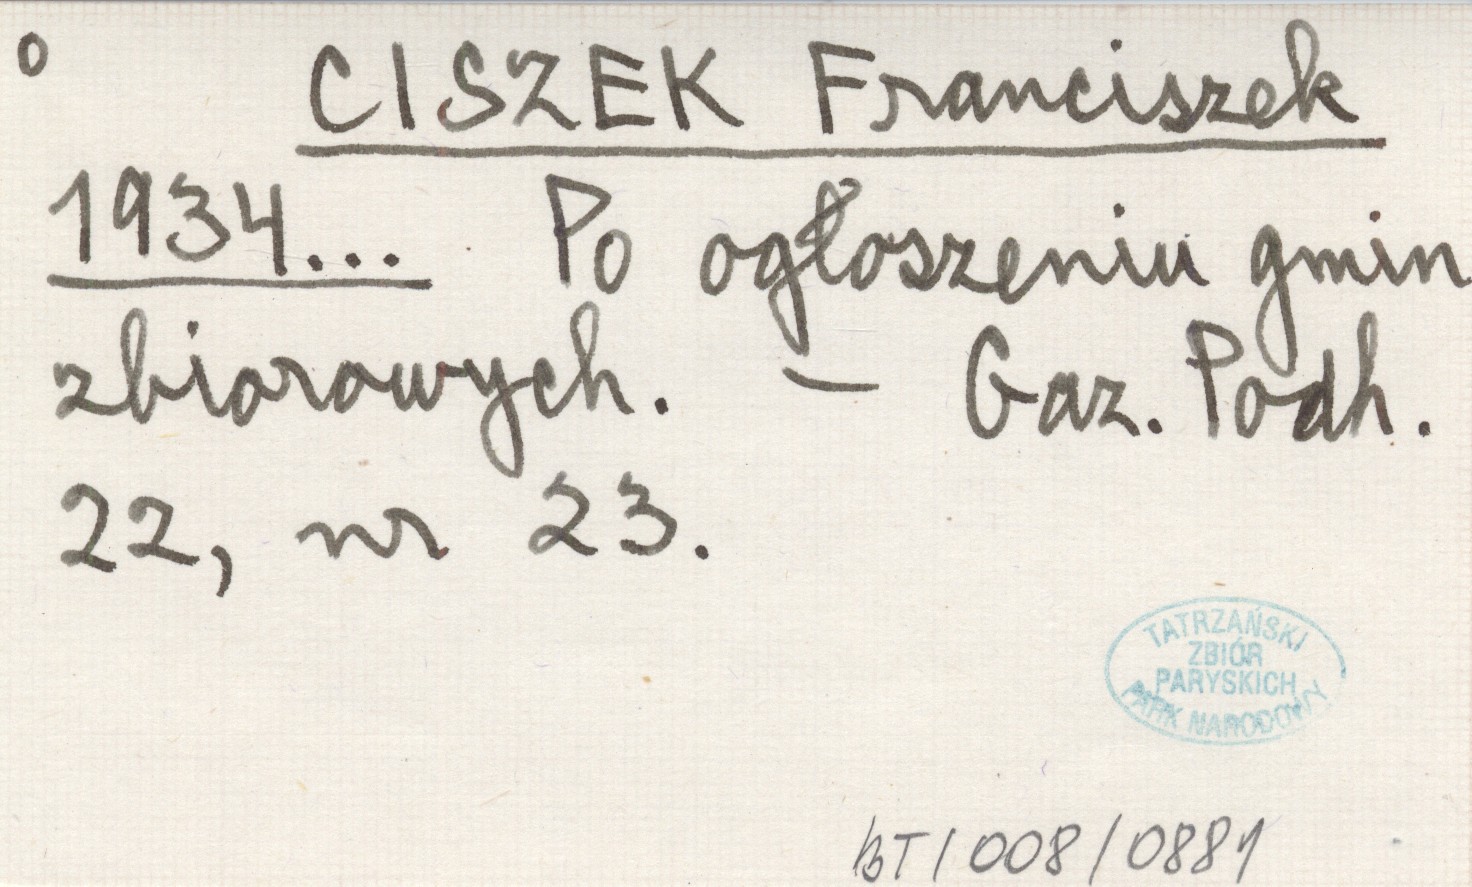 o CISZEK Franciszek
1934... Po ogłoszeniu gmin
zbiorowych. – Gaz. Podh.
22, nr 23.
TATRZAŃSKI
ZBIÓR
PARYSKICH
PARK NARODOWY
BT/008/0881